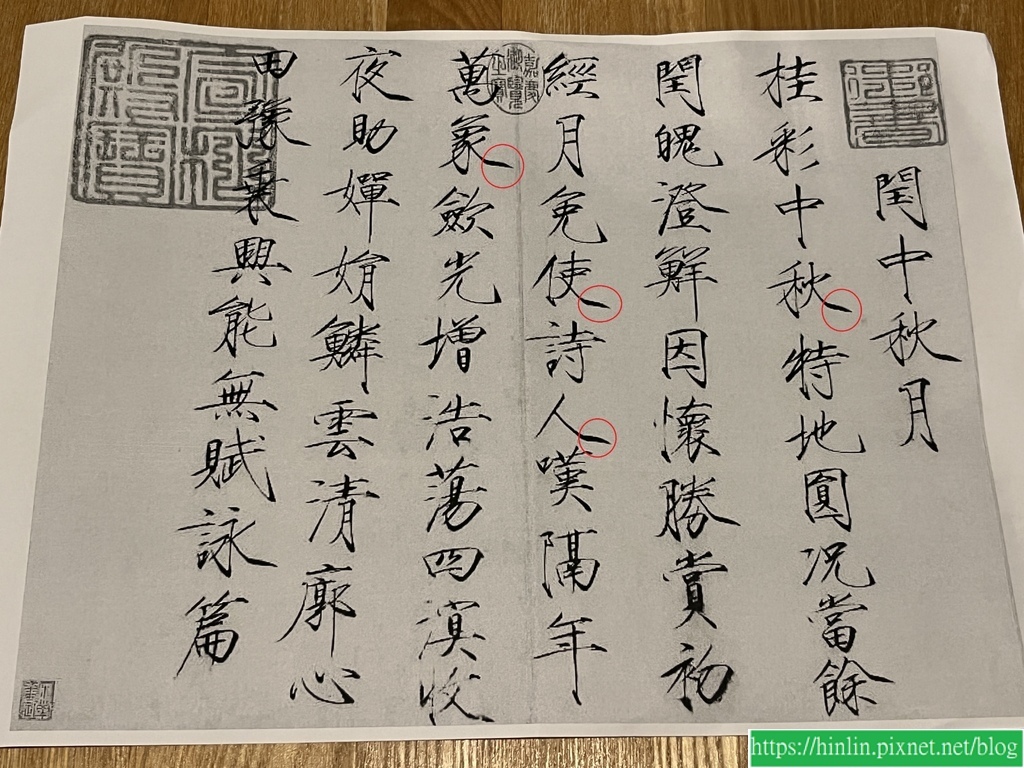 閏中秋月
桂彩中秋特地圓况當餘
閏魄澄鮮因懷勝賞初
經月免使詩人嘆隔年
萬象歛光增浩蕩四溟收
夜助嬋娟鱗雲清廓心
田豫乘興能無賦詠篇
御書
嘉慶御覽之寶
https://hinlin.pixnet.net/blog